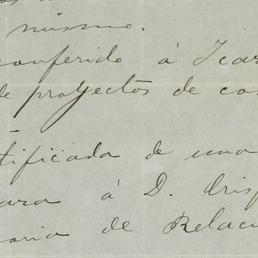 mismo.
conferido á Icar
de proyectos de co
tificada de una
ara á D. Crisp
aria de Relaci